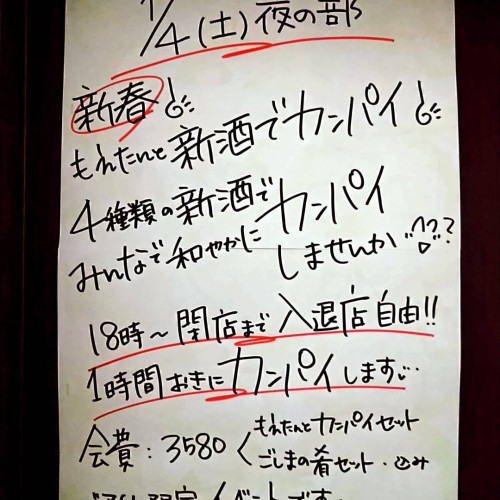 1/4(土)夜の部
新春!
もえたんと新酒でカンパイ!
4種類の新酒でカンパイ
みんなで和やかに
しませんか??
18時〜閉店まで入退店自由!!
1時間おきにカンパイします
会費:3580
もえたんとカンパイセット
ごしまの肴セット・込み